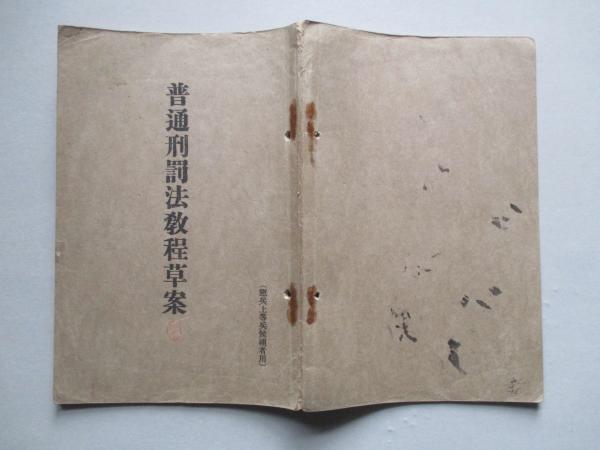 普通刑罰法教程草案
（憲兵上等兵候補者用）